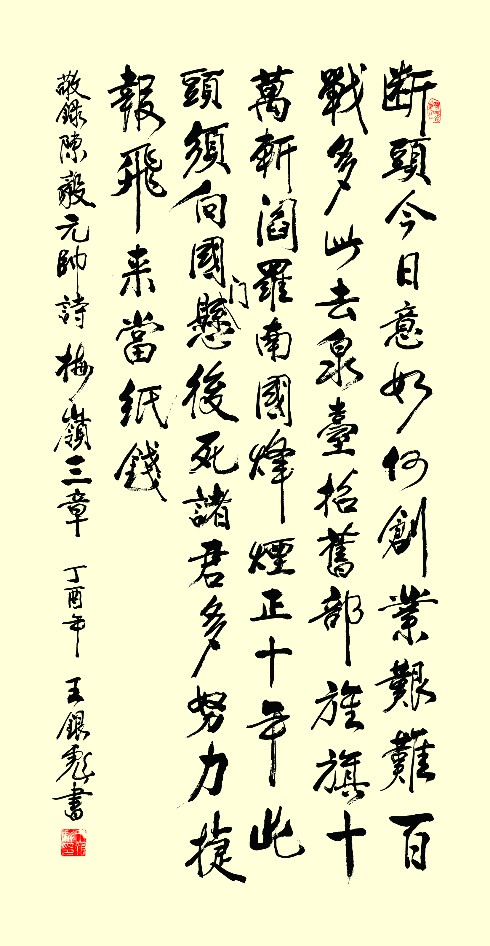 断頭今日意如何創業艱難百
戰多此去泉臺招舊部旌旗十
萬斬閻羅南國烽煙正十年此
頭須向國门懸後死諸君多努力捷
報飛来當紙錢
敬録陳毅元帥詩梅嶺三章 丁酉年 王銀彪書